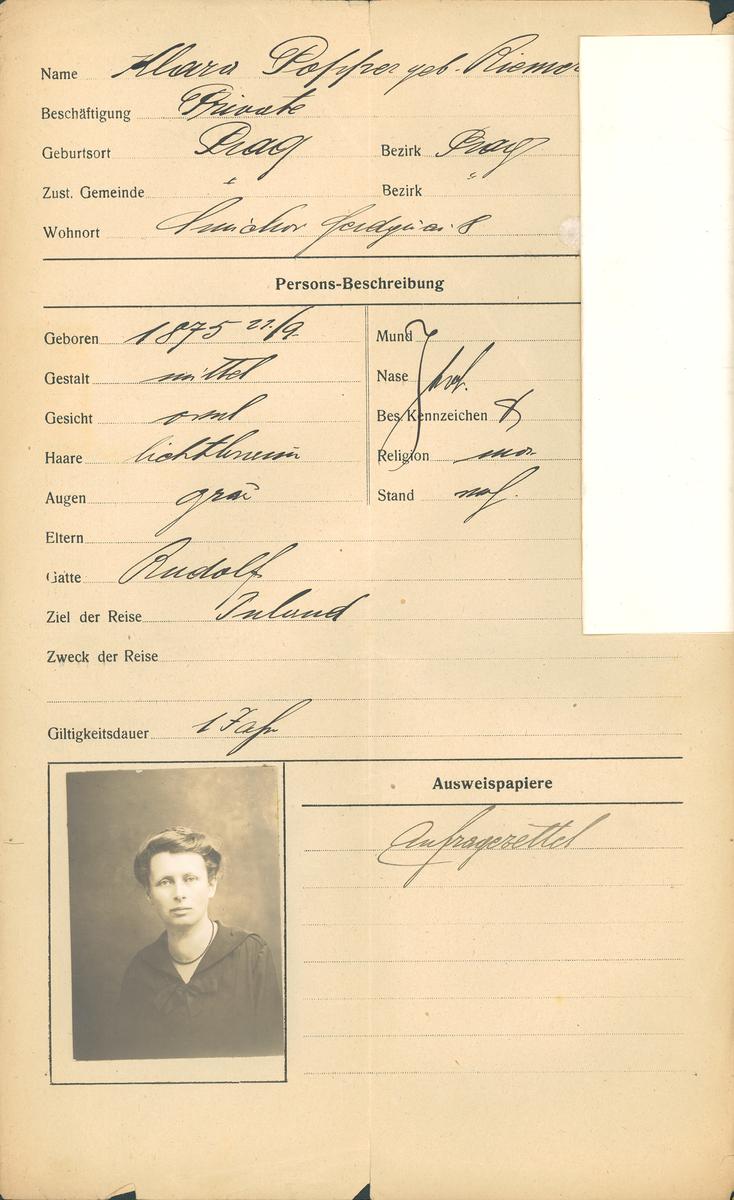 Name Klara Popper geb.
Beschäftigung Private
Geburtsort Prag Bezirk Prag
Zust. Gemeinde " Bezirk "
Wohnort Smichov 8
Persons-Beschreibung
Geboren 1875 21./9. Mund
Gestalt mittel Nase prop.
Gesicht oval Bes. Kennzeichen
Haare lichtbraun Religion mos.
Augen grau Stand
Eltern
Gatte Rudolf
Ziel der Reise Inland
Zweck der Reise
Giltigkeitsdauer 1 Jahr
Ausweispapiere
Anfragezettel